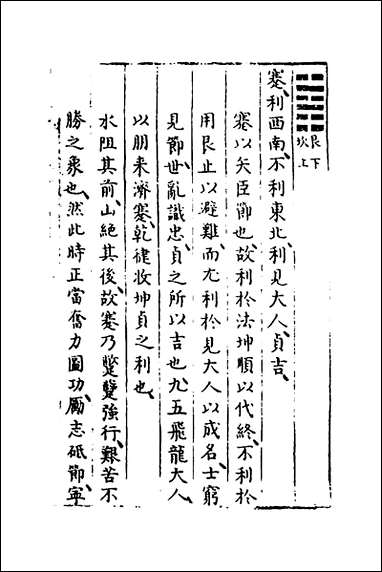 艮下
坎上
蹇、利西南、不利東北、利見大人、貞吉、
蹇以矢臣節也、故利於法坤順以代終、不利於
用艮止以避難、而尤利於見大人以成名、士窮
見節、世亂識忠、貞之所以吉也、九五飛龍大人、
以朋來濟蹇、乾健收坤貞之利也、
水阻其前、山絶其後、故蹇乃蹩躄強行、艱苦不
勝之象也、然此時正當奮力圖功、勵志砥節、寧